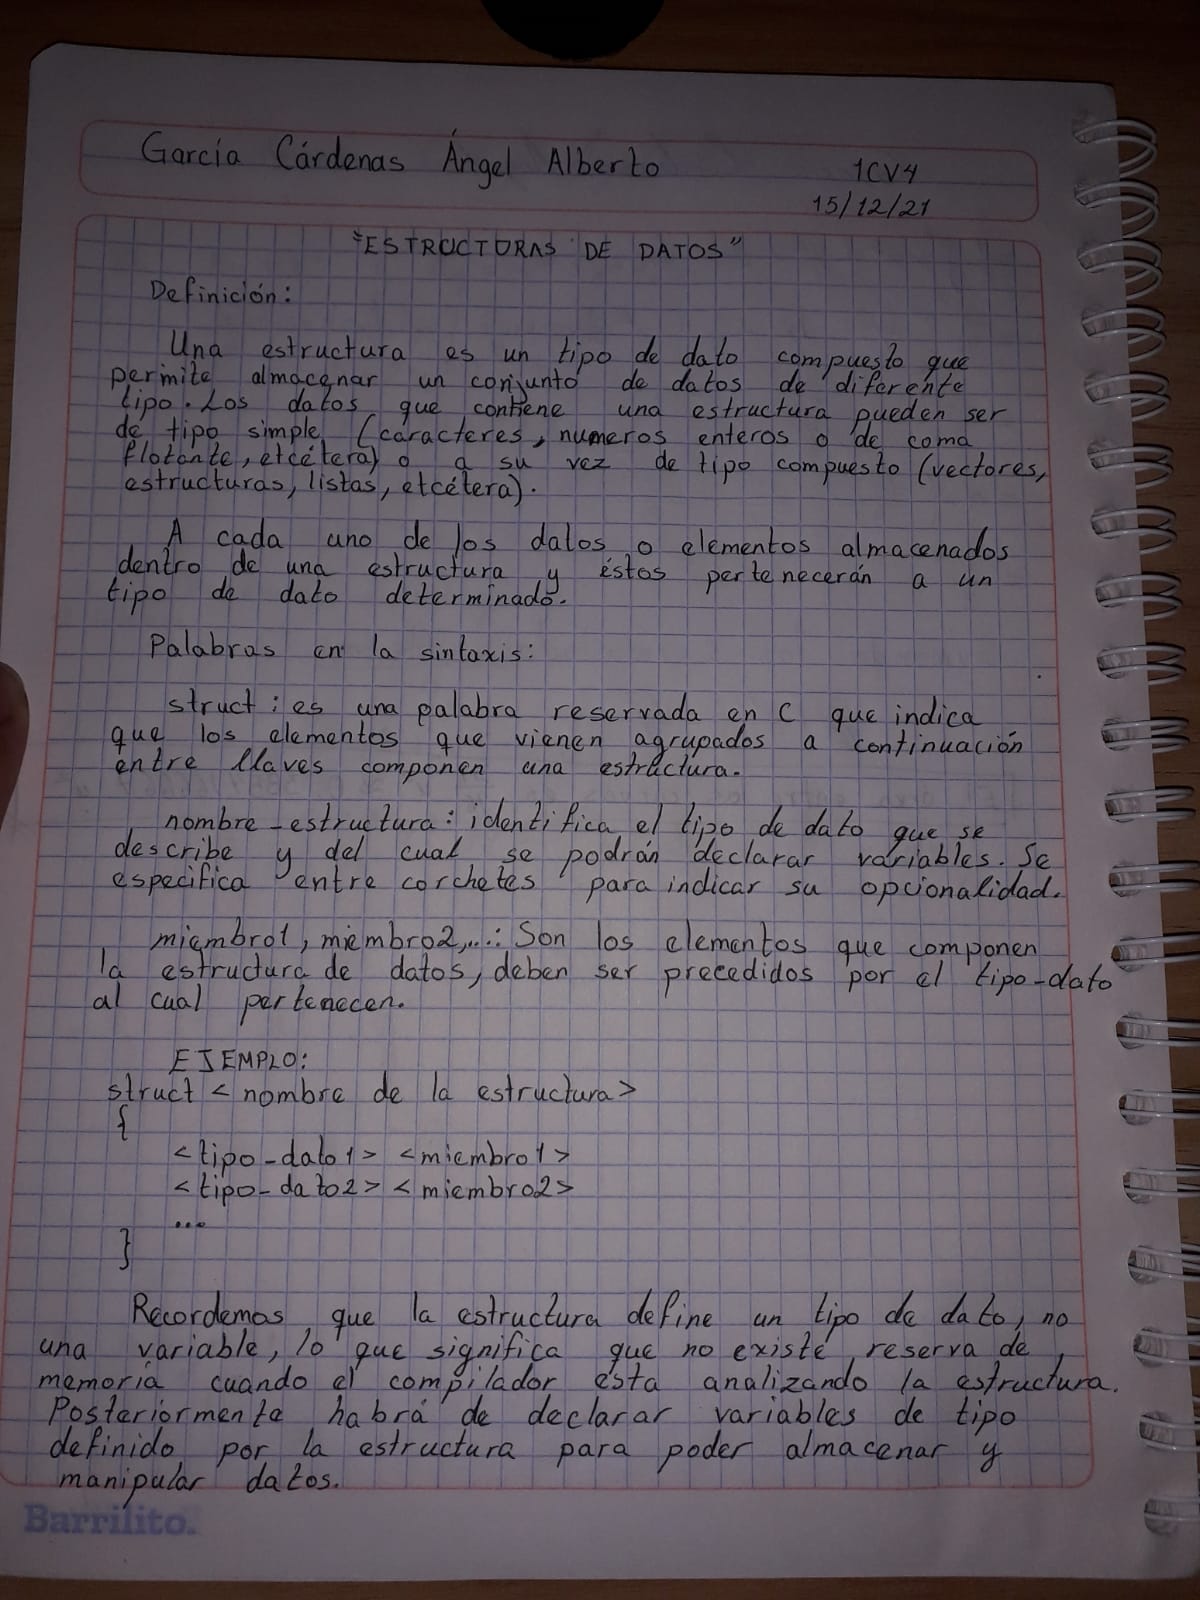 García Cárdenas Ángel Alberto
1CV4
15/12/21
"ESTRUCTURAS DE DATOS"
Definición:
Una estructura es un tipo de dato compuesto que
permite almacenar un conjunto de datos de diferente
tipo. Los datos que contiene una estructura pueden ser
de tipo simple (caracteres, numeros enteros o de coma
flotante, etcétera) o a su vez de tipo compuesto (vectores,
estructuras, listas, etcétera).
A cada uno de los datos o elementos almacenados
dentro de una estructura y éstos pertenecerán a un
tipo de dato determinado.
Palabras en la sintaxis:
struct: es una palabra reservada en C que indica
que los elementos que vienen agrupados a continuación
entre llaves componen una estructura.
nombre-estructura: identifica el tipo de dato que se
describe y del cual se podrán declarar variables. Se
especifica entre corchetes para indicar su opcionalidad.
miembro1, miembro2,...: Son los elementos que componen
la estructura de datos, deben ser precedidos por el tipo-dato
al cual pertenecen.
EJEMPLO:
struct <nombre de la estructura>
{
<tipo-dato1> <miembro1>
<tipo-dato2> <miembro2>
...
}
Recordemos que la estructura define un tipo de dato, no
una variable, lo que significa que no existe reserva de
memoria cuando el compilador esta analizando la estructura.
Posteriormente habrá de declarar variables de tipo
definido por la estructura para poder almacenar y
manipular datos.
Barrilito.